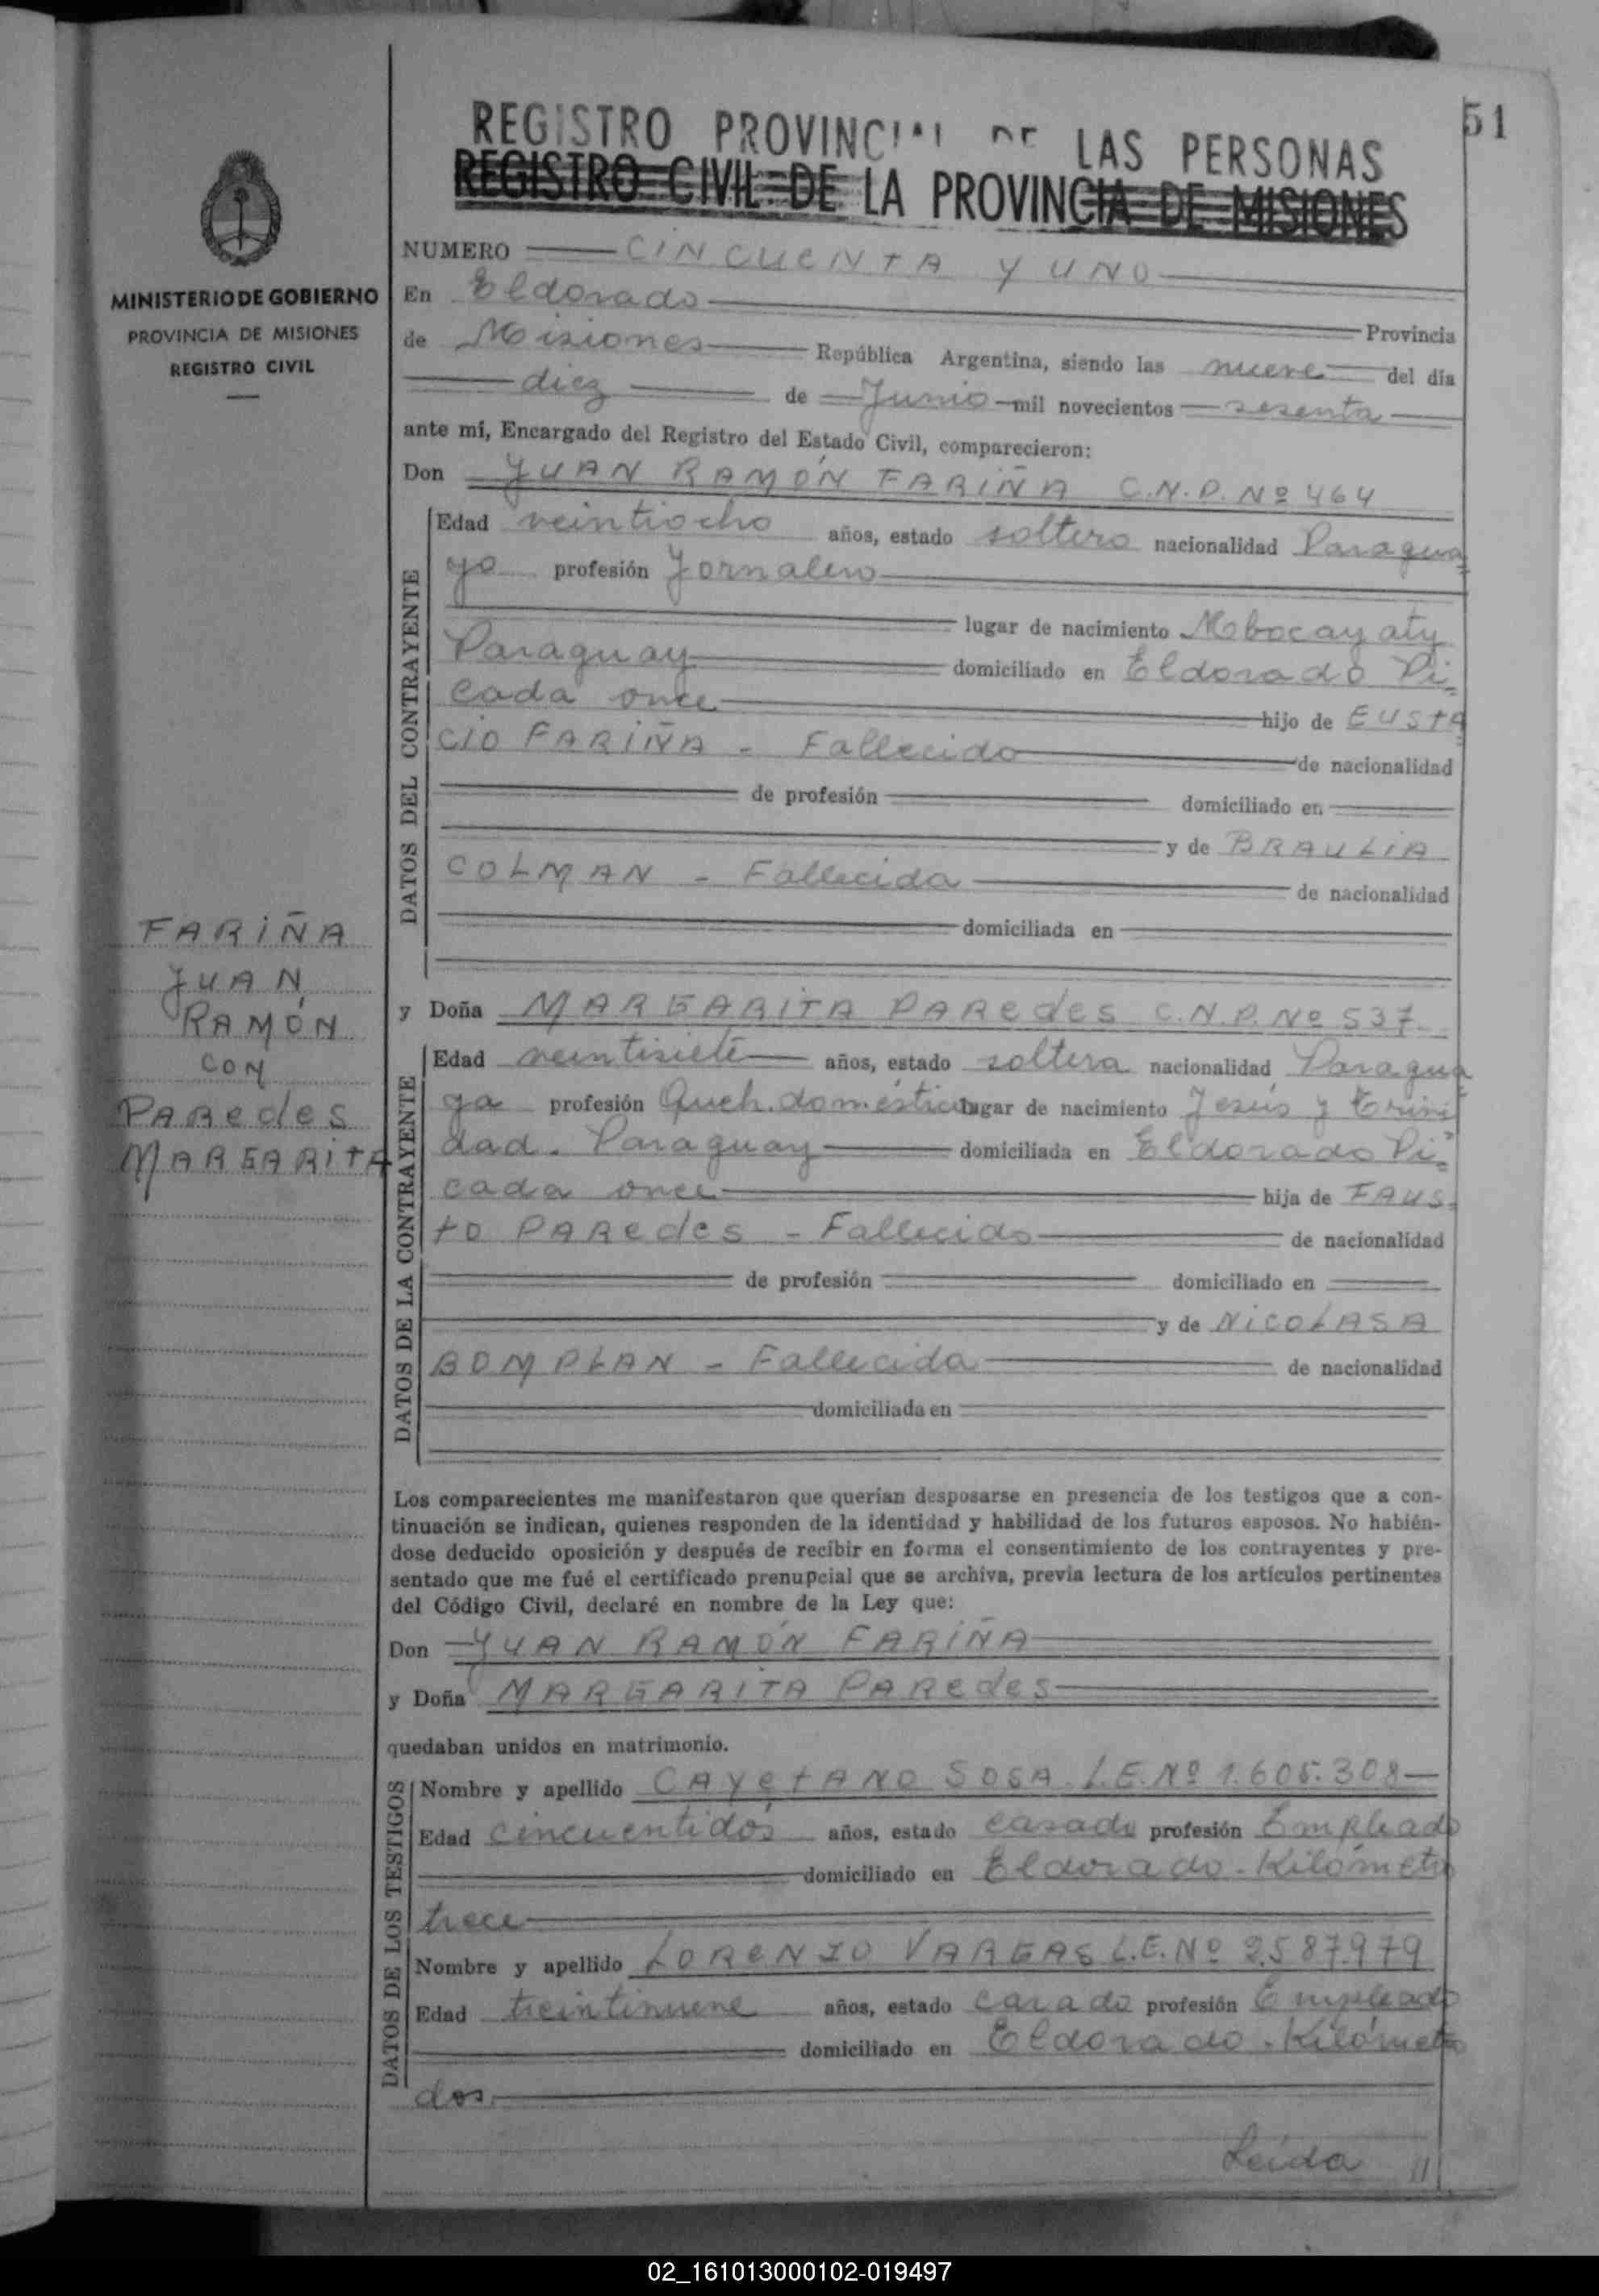 51
REGISTRO PROVINCIAL DE LAS PERSONAS
REGISTRO CIVIL DE LA PROVINCIA DE MISIONES
MINISTERIO DE GOBIERNO
PROVINCIA DE MISIONES
REGISTRO CIVIL
NUMERO CINCUENTA Y UNO
En Eldorado Provincia
de Misiones República Argentina, siendo las nueve del día
diez de Junio mil novecientos sesenta
ante mí, Encargado del Registro del Estado Civil, comparecieron:
Don JUAN RAMÓN FARIÑA C.N.P. Nº 464
DATOS DEL CONTRAYENTE
Edad veintiocho años, estado soltero nacionalidad Paragua
yo profesión Jornalero
lugar de nacimiento Mbocayaty
Paraguay domiciliado en Eldorado Pi-
cada once hijo de EUSTA
CIO FARIÑA - Fallecido de nacionalidad
de profesión domiciliado en
y de BRAULIA
COLMAN - Fallecida de nacionalidad
domiciliada en
FARIÑA
JUAN
RAMÓN
CON
PARedes
MARGARITA
y Doña MARGARITA PARedes C.N.P. Nº 537
DATOS DE LA CONTRAYENTE
Edad veintisiete años, estado soltera nacionalidad Paragua
ya profesión Queh. domésticos lugar de nacimiento Jesús y Trini
dad. Paraguay domiciliada en Eldorado Pi-
cada once hija de FAUS-
to PARedes - Fallecido de nacionalidad
de profesión domiciliado en
y de NICOLASA
BOMPLAN - Fallecida de nacionalidad
domiciliada en
Los comparecientes me manifestaron que querían desposarse en presencia de los testigos que a con-
tinuación se indican, quienes responden de la identidad y habilidad de los futuros esposos. No habién-
dose deducido oposición y después de recibir en forma el consentimiento de los contrayentes y pre-
sentado que me fué el certificado prenupcial que se archiva, previa lectura de los artículos pertinentes
del Código Civil, declaré en nombre de la Ley que:
Don JUAN RAMÓN FARIÑA
y Doña MARGARITA PARedes
quedaban unidos en matrimonio.
DATOS DE LOS TESTIGOS
Nombre y apellido CAYetANO SOSA L.E. Nº 1.605.308
Edad cincuentidós años, estado casado profesión Empleado
domiciliado en Eldorado - Kilómetro
trece
Nombre y apellido LORENZO VARGAS L.E. Nº 2587979
Edad treintinueve años, estado casado profesión Empleado
domiciliado en Eldorado - Kilómetro
dos.
Leída //
02_161013000102-019497